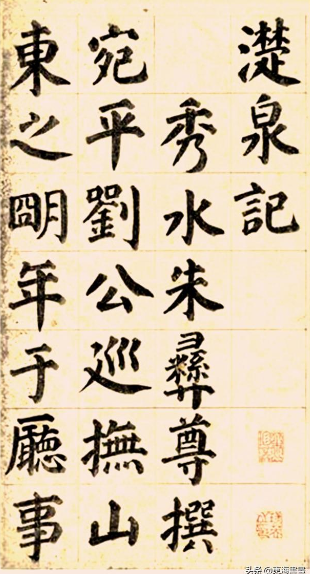 濋泉記
秀水朱彝尊撰
宛平劉公巡撫山
東之朙年于廳事